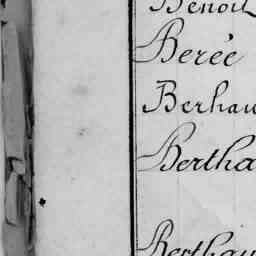 Benoit
Berée
Berhau
Bertha
Berthau